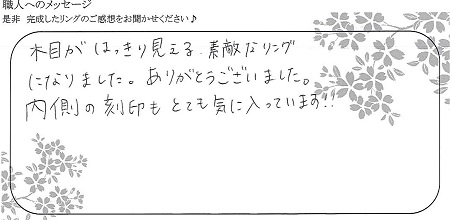 職人へのメッセージ
是非 完成したリングのご感想をお聞かせください♪
木目が はっきり見える 素敵なリング
になりました。ありがとうございました。
内側の刻印も とても気に入っています!!